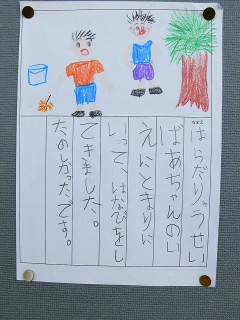 なまえ
はらだりゅうせい
ばあちゃんのい
えにとまりに
いって、はなびをし
できました。
たのしかったです。